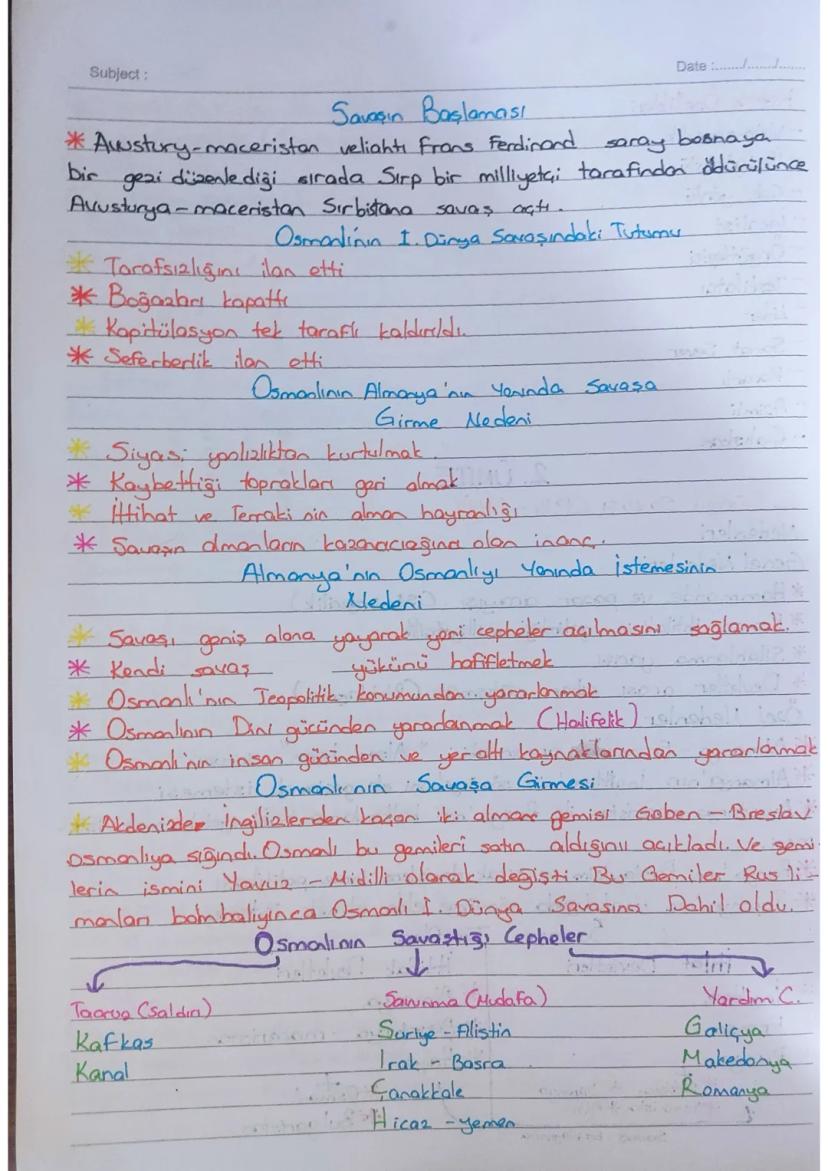 Subject :
Date :....../....../......
Savaşın Başlaması
* Avustury-maceristan veliahtı Frans Ferdinand saray bosnaya
bir gezi düzenlediği sırada Sırp bir milliyetçi tarafından öldürülünce
Avusturya-maceristan Sırbistana savaş açtı.
Osmanlı'nın I. Dünya Savaşındaki Tutumu
* Tarafsızlığını ilan etti
* Boğazları kapattı
* Kapitülasyon tek taraflı kaldırıldı.
* Seferberlik ilan etti
Osmanlının Almanya'nın Yanında Savaşa
Girme Nedeni
* Siyasi yanlızlıktan kurtulmak.
* Kaybettiği toprakları geri almak
* İttihat ve Terraki nin alman hayranlığı
* Savaşın almanların kazanacıağına olan inanç.
Almanya'nın Osmanlıyı Yanında İstemesinin
Nedeni
* Savaşı geniş alana yayarak yeni cepheler açılmasını sağlamak.
* Kendi savaş yükünü hafifletmek
* Osmanlı'nın Jeopolitik konumundan yararlanmak
* Osmanlının Dini gücünden yararlanmak (Halifelik)
* Osmanlı'nın insan gücünden ve yer altı kaynaklarından yararlanmak
Osmanlının Savaşa Girmesi
* Akdenizde İngilizlerden kaçan iki alman gemisi Goben - Breslav
osmanlıya sığındı. Osmanlı bu gemileri satın aldığını açıkladı. Ve gemi-
lerin ismini Yavuz - Midilli olarak değişti. Bu Gemiler Rus li-
manları bombalıyınca Osmanlı I. Dünya Savaşına Dahil oldu.
Osmalının Savaştığı Cepheler
Taaruz (Saldırı)
Kafkas
Kanal
Savunma (Mudafa)
Suriye - Filistin
Irak - Basra
Çanakkale
Hicaz - yemen
Yardım C.
Galiçya
Makedonya
Romanya